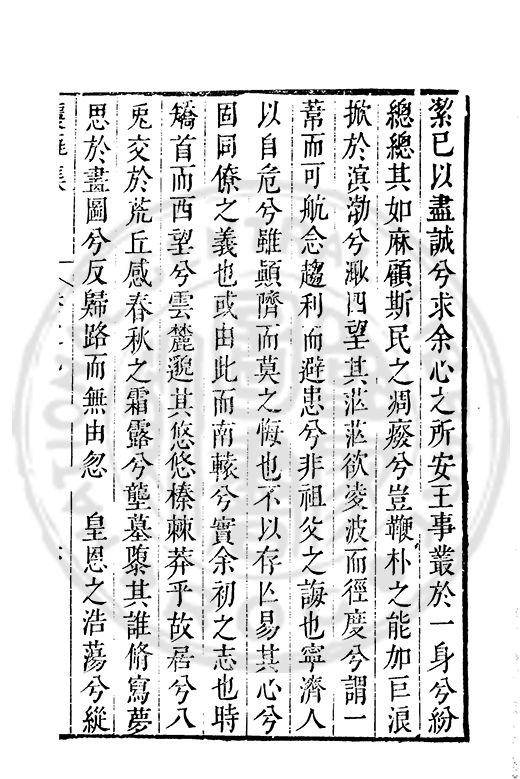 絜已以盡誠兮求余心之所安王事叢於一身兮紛
總總其如麻顧斯民之凋瘵兮豈鞭朴之能加巨浪
掀於溟渤兮漱四望其茫茫欲凌波而徑度兮謂一
葦而可航念趨利而避患兮非祖父之誨也寧濟人
以自危兮雖顛隮而莫之悔也不以存亾易其心兮
固同僚之義也或由此而南轅兮實余初之志也時
矯首而西望兮雲麓邈其悠悠榛棘莽乎故居兮八
兎交於荒丘感春秋之霜露兮壟墓隳其誰脩寫夢
思於畫圖兮反歸路而無由忽 皇恩之浩蕩兮縱